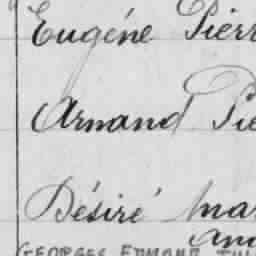 Eugéne Pierr
Armand Pie
Désiré Mar
GEORGES EDMOND